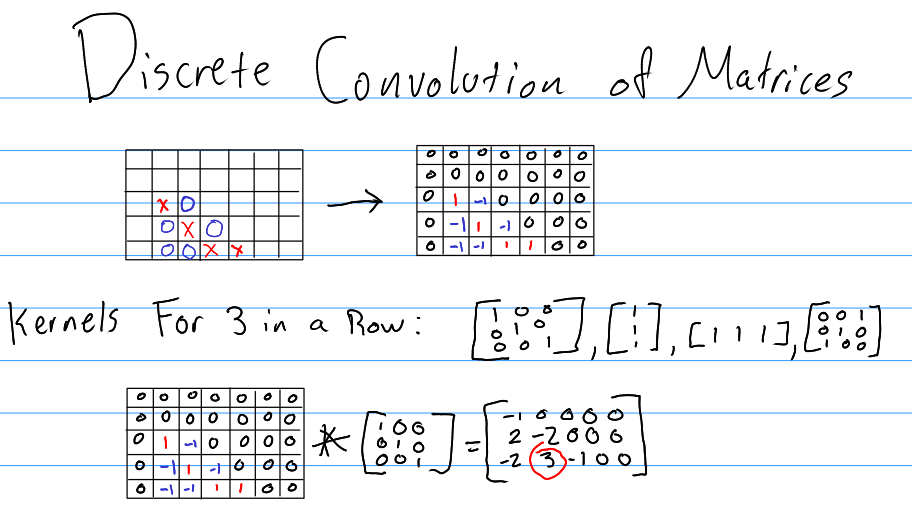 Discrete Convolution of Matrices
X O
O X O
O O X X
→
0 0 0 0 0 0 0
0 0 0 0 0 0 0
0 1 -1 0 0 0 0
0 -1 1 -1 0 0 0
0 -1 -1 1 1 0 0
Kernels For 3 in a Row: [1 0 0
0 1 0
0 0 1], [1
1
1], [1 1 1], [0 0 1
0 1 0
1 0 0]
0 0 0 0 0 0 0
0 0 0 0 0 0 0
0 1 -1 0 0 0 0
0 -1 1 -1 0 0 0
0 -1 -1 1 1 0 0
* [1 0 0
0 1 0
0 0 1] = [-1 0 0 0 0
2 -2 0 0 0
-2 3 -1 0 0]